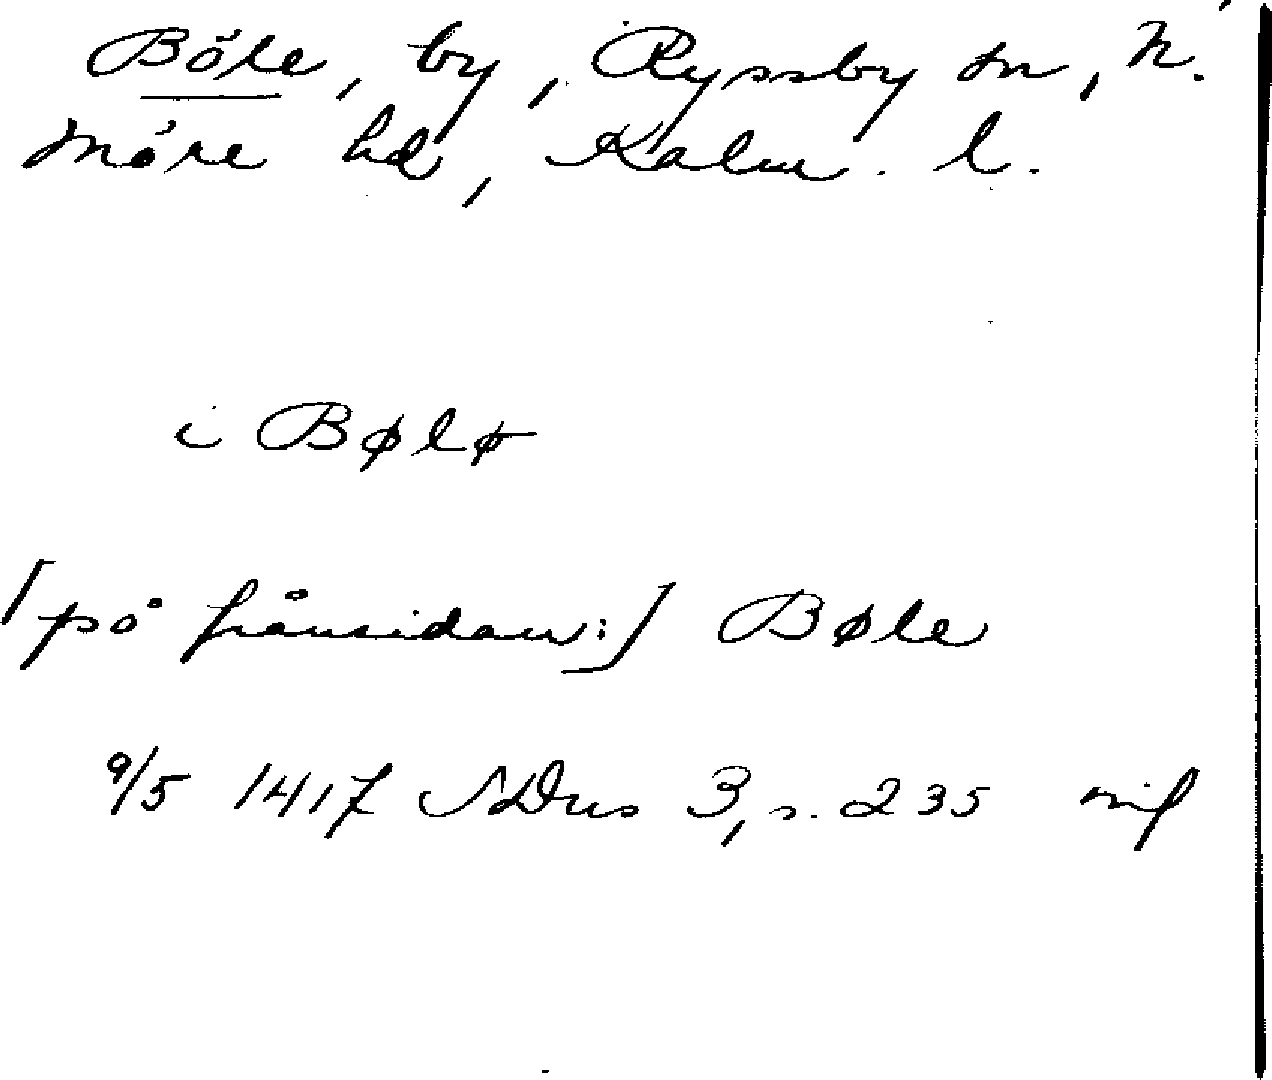 Böle, by, Ryssby sn, N.
Möre hd, Kalm. l.
i Bølø
[på frånsidan:] Bøle
9/5 1417 SDns 3, s. 235